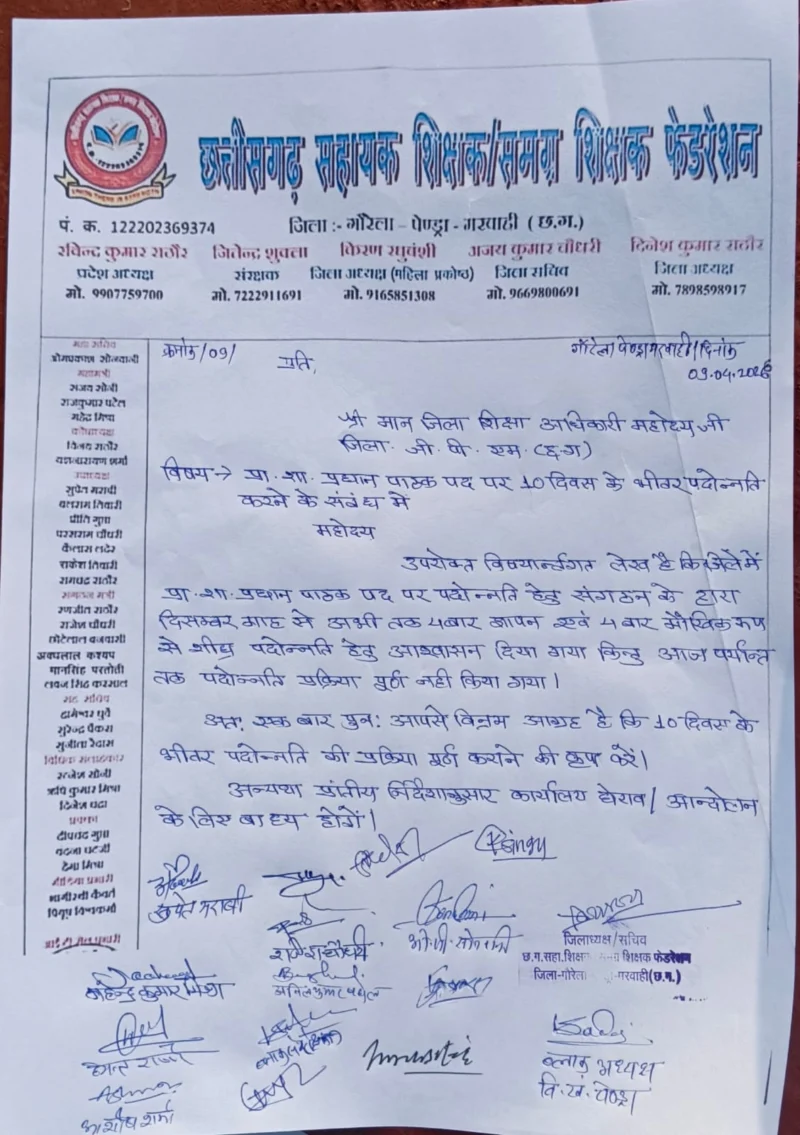 छत्तीसगढ़ सहायक शिक्षक/समग्र शिक्षक फेडरेशन
पं. क. 122202369374
जिला :- गौरेला – पेण्ड्रा - मरवाही ( छ.ग.)
रविन्द्र कुमार राठौर जितेन्द्र शुक्ला किरण रघुवंशी अजय कुमार चौधरी दिनेश कुमार राठौर
प्रदेश अध्यक्ष संरक्षक जिला अध्यक्ष (महिला प्रकोष्ठ) जिला सचिव जिला अध्यक्ष
मो. 9907759700 मो. 7222911691 मो. 9165851308 मो. 9669800691 मो. 7898598917
महा सचिव
ओमप्रकाश सोनवानी
महामंत्री
संजय सोनी
राजकुमार पटेल
महेन्द्र मिश्रा
कोषाध्यक्ष
विजय राठौर
यज्ञनारायण शर्मा
उपाध्यक्ष
सुपेत मरावी
बलराम तिवारी
प्रीति गुप्ता
परसराम चौधरी
कैलाश लदेर
राकेश तिवारी
रामचंद्र राठौर
संगठन मंत्री
रणजीत राठौर
राजेश चौधरी
छोटेलाल बनवासी
अवधलाल कश्यप
मानसिंह परतोती
लवन सिंह करसाल
सह सचिव
दामेश्वर धुर्वे
सुरेन्द्र पैकरा
सुजीता रैदास
विधिक सलाहकार
राजेश सोनी
ऋषि कुमार मिश्रा
दिनेश चंद्रा
प्रवक्ता
दीपचंद गुप्ता
वंदना चटर्जी
हेमा मिश्रा
मीडिया प्रभारी
भागीरथी कैवर्त
पियूष विश्वकर्मा
आई टी सेल प्रभारी
क्रमांक/09/
गौरेला पेण्ड्रा मरवाही/दिनांक
09.04.2026
प्रति,
श्री मान जिला शिक्षा अधिकारी महोदय जी
जिला. जी. पी. एम. (छ.ग)
विषय → प्रा. शा. प्रधान पाठक पद पर 10 दिवस के भीतर पदोन्नति
करने के संबंध में
महोदय
उपरोक्त विषयान्तर्गत लेख है कि जिले में
प्रा. शा. प्रधान पाठक पद पर पदोन्नति हेतु संगठन के द्वारा
दिसम्बर माह से अभी तक 4 बार ज्ञापन एवं 4 बार मौखिक रूप
से शीघ्र पदोन्नति हेतु आश्वासन दिया गया किन्तु आज पर्यन्त
तक पदोन्नति प्रक्रिया पूर्ण नहीं किया गया।
अतः एक बार पुनः आपसे विनम्र आग्रह है कि 10 दिवस के
भीतर पदोन्नति की प्रक्रिया पूर्ण कराने की कृपा करें।
अन्यथा प्रांतीय निर्देशानुसार कार्यालय घेराव / आन्दोलन
के लिए बाध्य होगें।
सुपेत मरावी
जिलाध्यक्ष/सचिव
छ.ग.सहा.शिक्षक शिक्षक फेडरेशन
जिला-गौरेला मरवाही(छ.ग.)
महेन्द्र कुमार मिश्रा
ब्लाक अध्यक्ष
वि. खं. पेण्ड्रा
आशीष शर्मा